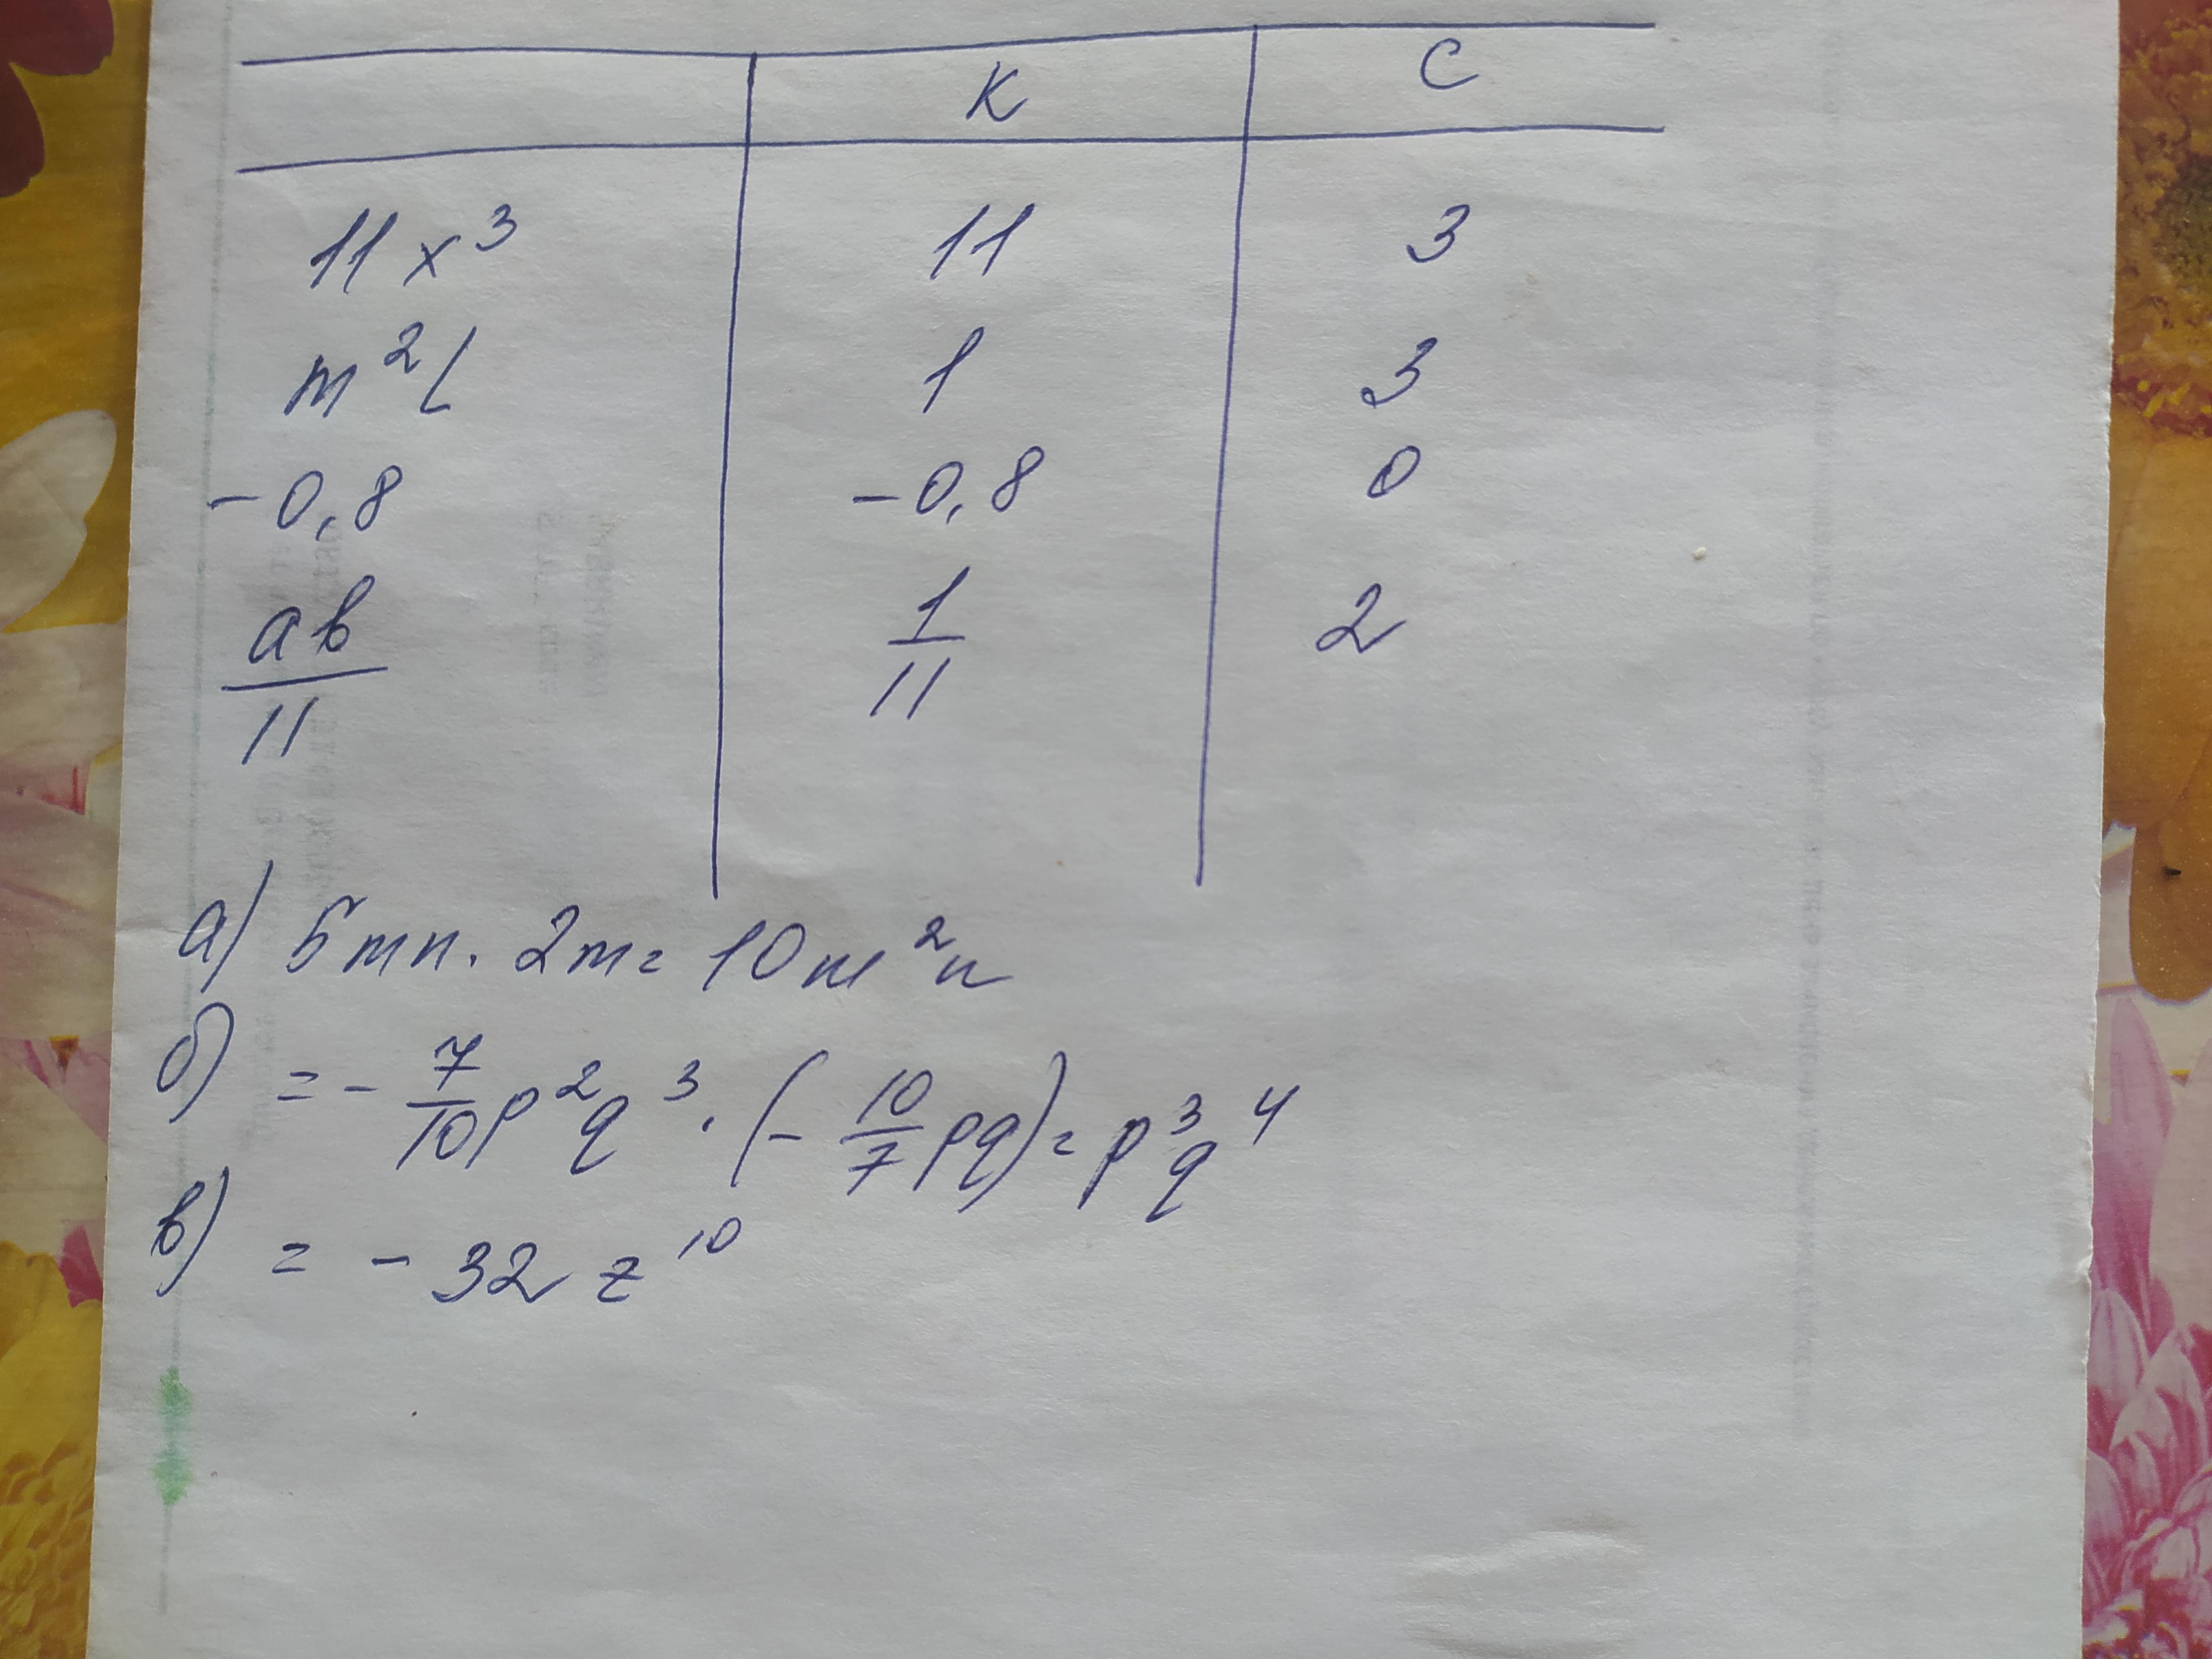 К С
11x³ 11 3
m²l 1 3
-0,8 -0,8 0
ab/11 1/11 2
а) 5mn · 2m = 10m²n
б) = - 7/10 p²q³ · (- 10/7 pq) = p³q⁴
в) = - 32 z¹⁰